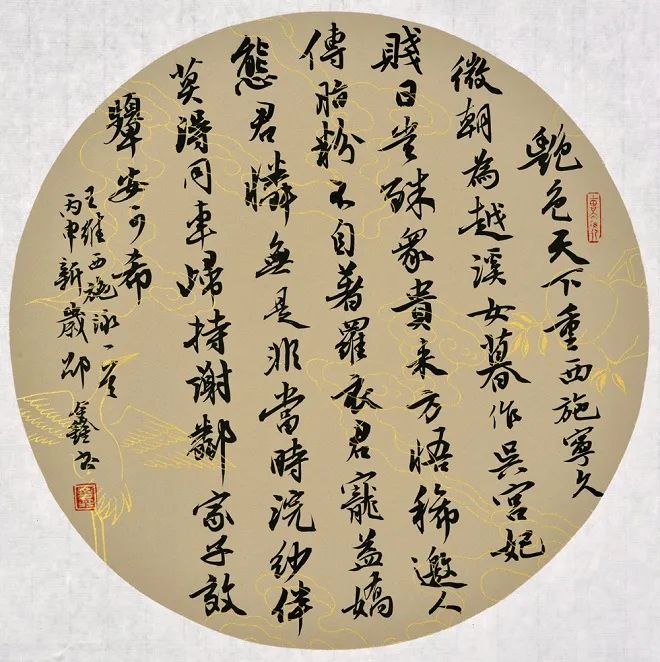 艷色天下重西施寧久
微朝為越溪女暮作吳宮妃
賤日豈殊眾貴來方悟稀邀人
傳脂粉不自著羅衣君寵益嬌
態君憐無是非當時浣紗伴
莫得同車歸持謝鄰家子效
顰安可希
王維西施詠一首
丙申新歲邵金鑫書